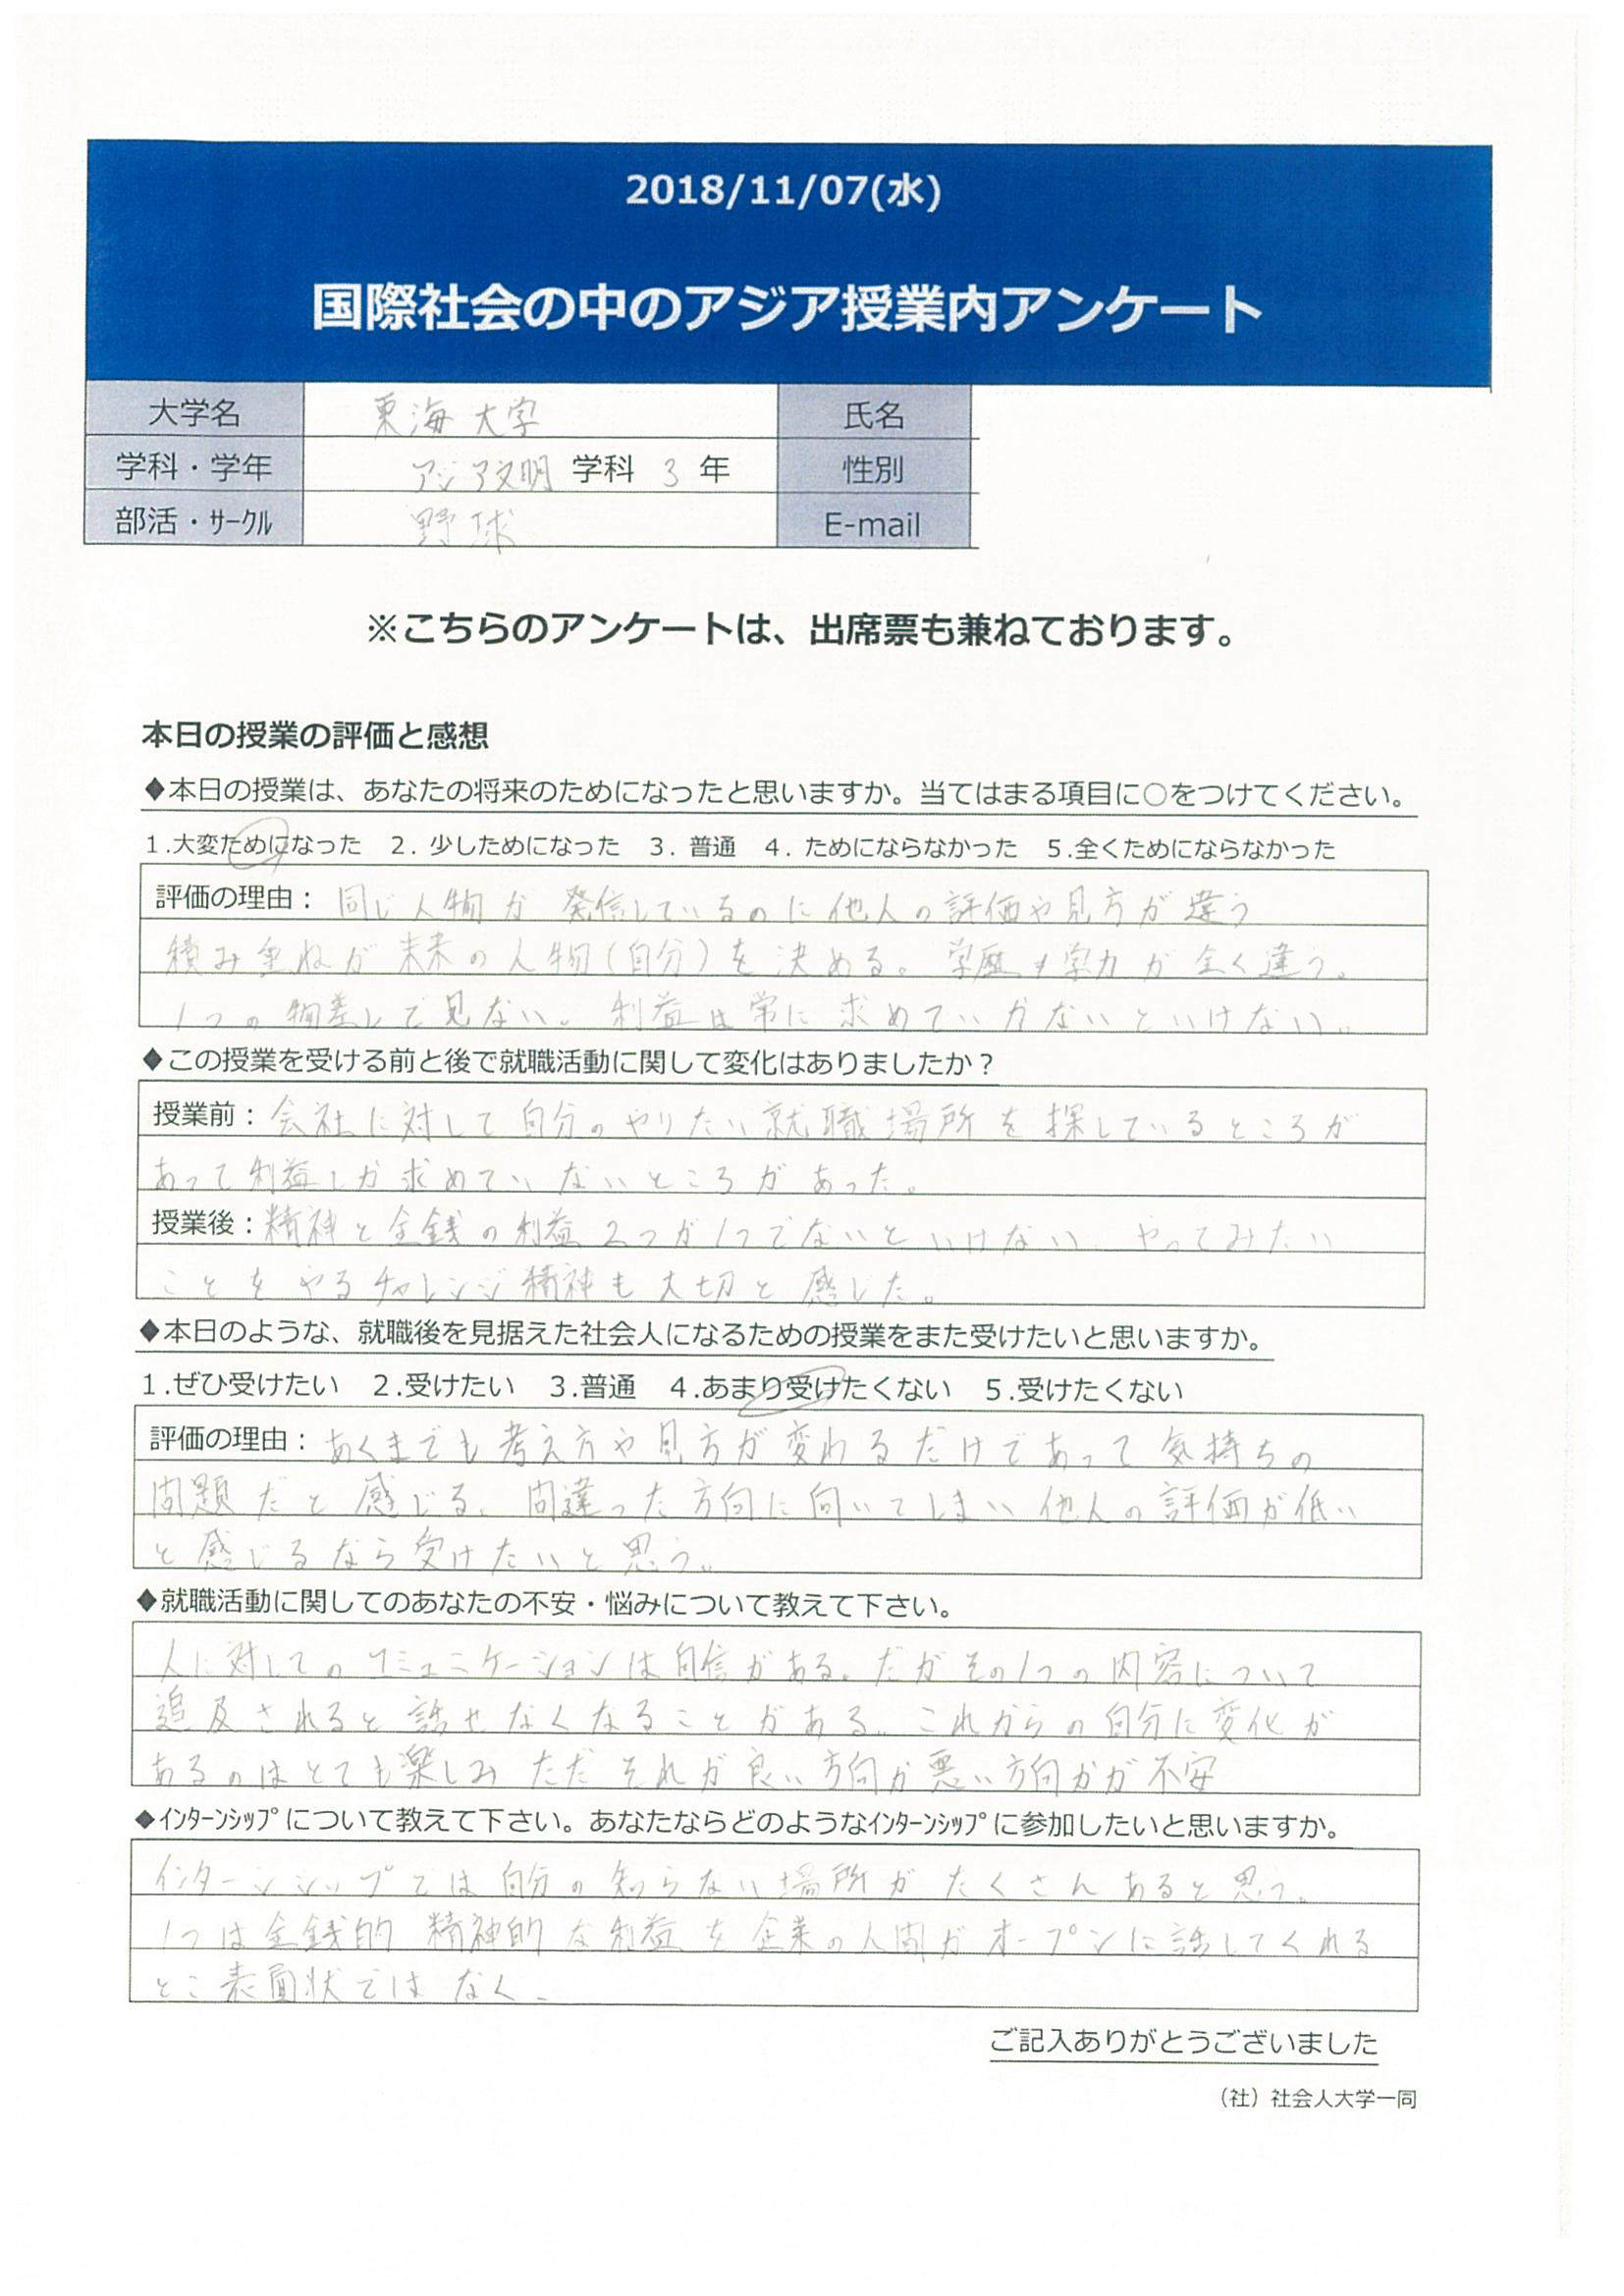 2018/11/07(水)
国際社会の中のアジア授業内アンケート
大学名 東海大学 氏名
学科・学年 アジア文明 学科 3 年 性別
部活・サークル 野球 E-mail
※こちらのアンケートは、出席票も兼ねております。
本日の授業の評価と感想
◆本日の授業は、あなたの将来のためになったと思いますか。当てはまる項目に○をつけてください。
1.大変ためになった 2. 少しためになった 3. 普通 4. ためにならなかった 5.全くためにならなかった
評価の理由: 同じ人物が発信しているのに他人の評価や見方が違う
積み重ねが未来の人物(自分)を決める。学歴≠学力が全く違う。
1つの物差しで見ない。利益は常に求めていかないといけない。
◆この授業を受ける前と後で就職活動に関して変化はありましたか?
授業前: 会社に対して自分のやりたい就職場所を探しているところが
あって利益しか求めていないところがあった。
授業後: 精神と金銭の利益2つが1つでないといけない。やってみたい
ことをやるチャレンジ精神も大切と感じた。
◆本日のような、就職後を見据えた社会人になるための授業をまた受けたいと思いますか。
1.ぜひ受けたい 2.受けたい 3.普通 4.あまり受けたくない 5.受けたくない
評価の理由: あくまでも考え方や見方が変わるだけであって気持ちの
問題だと感じる。間違った方向に向いてしまい他人の評価が低い
と感じるなら受けたいと思う。
◆就職活動に関してのあなたの不安・悩みについて教えて下さい。
人に対してのコミュニケーションは自信がある。だがその1つの内容について
追及されると話せなくなることがある。これからの自分に変化が
あるのはとても楽しみ ただそれが良い方向か悪い方向かが不安
◆インターンシップについて教えて下さい。あなたならどのようなインターンシップに参加したいと思いますか。
インターンシップでは自分の知らない場所がたくさんあると思う。
1つは金銭的 精神的な利益を企業の人間がオープンに話してくれる
とこ 表面状ではなく。
ご記入ありがとうございました
(社)社会人大学一同